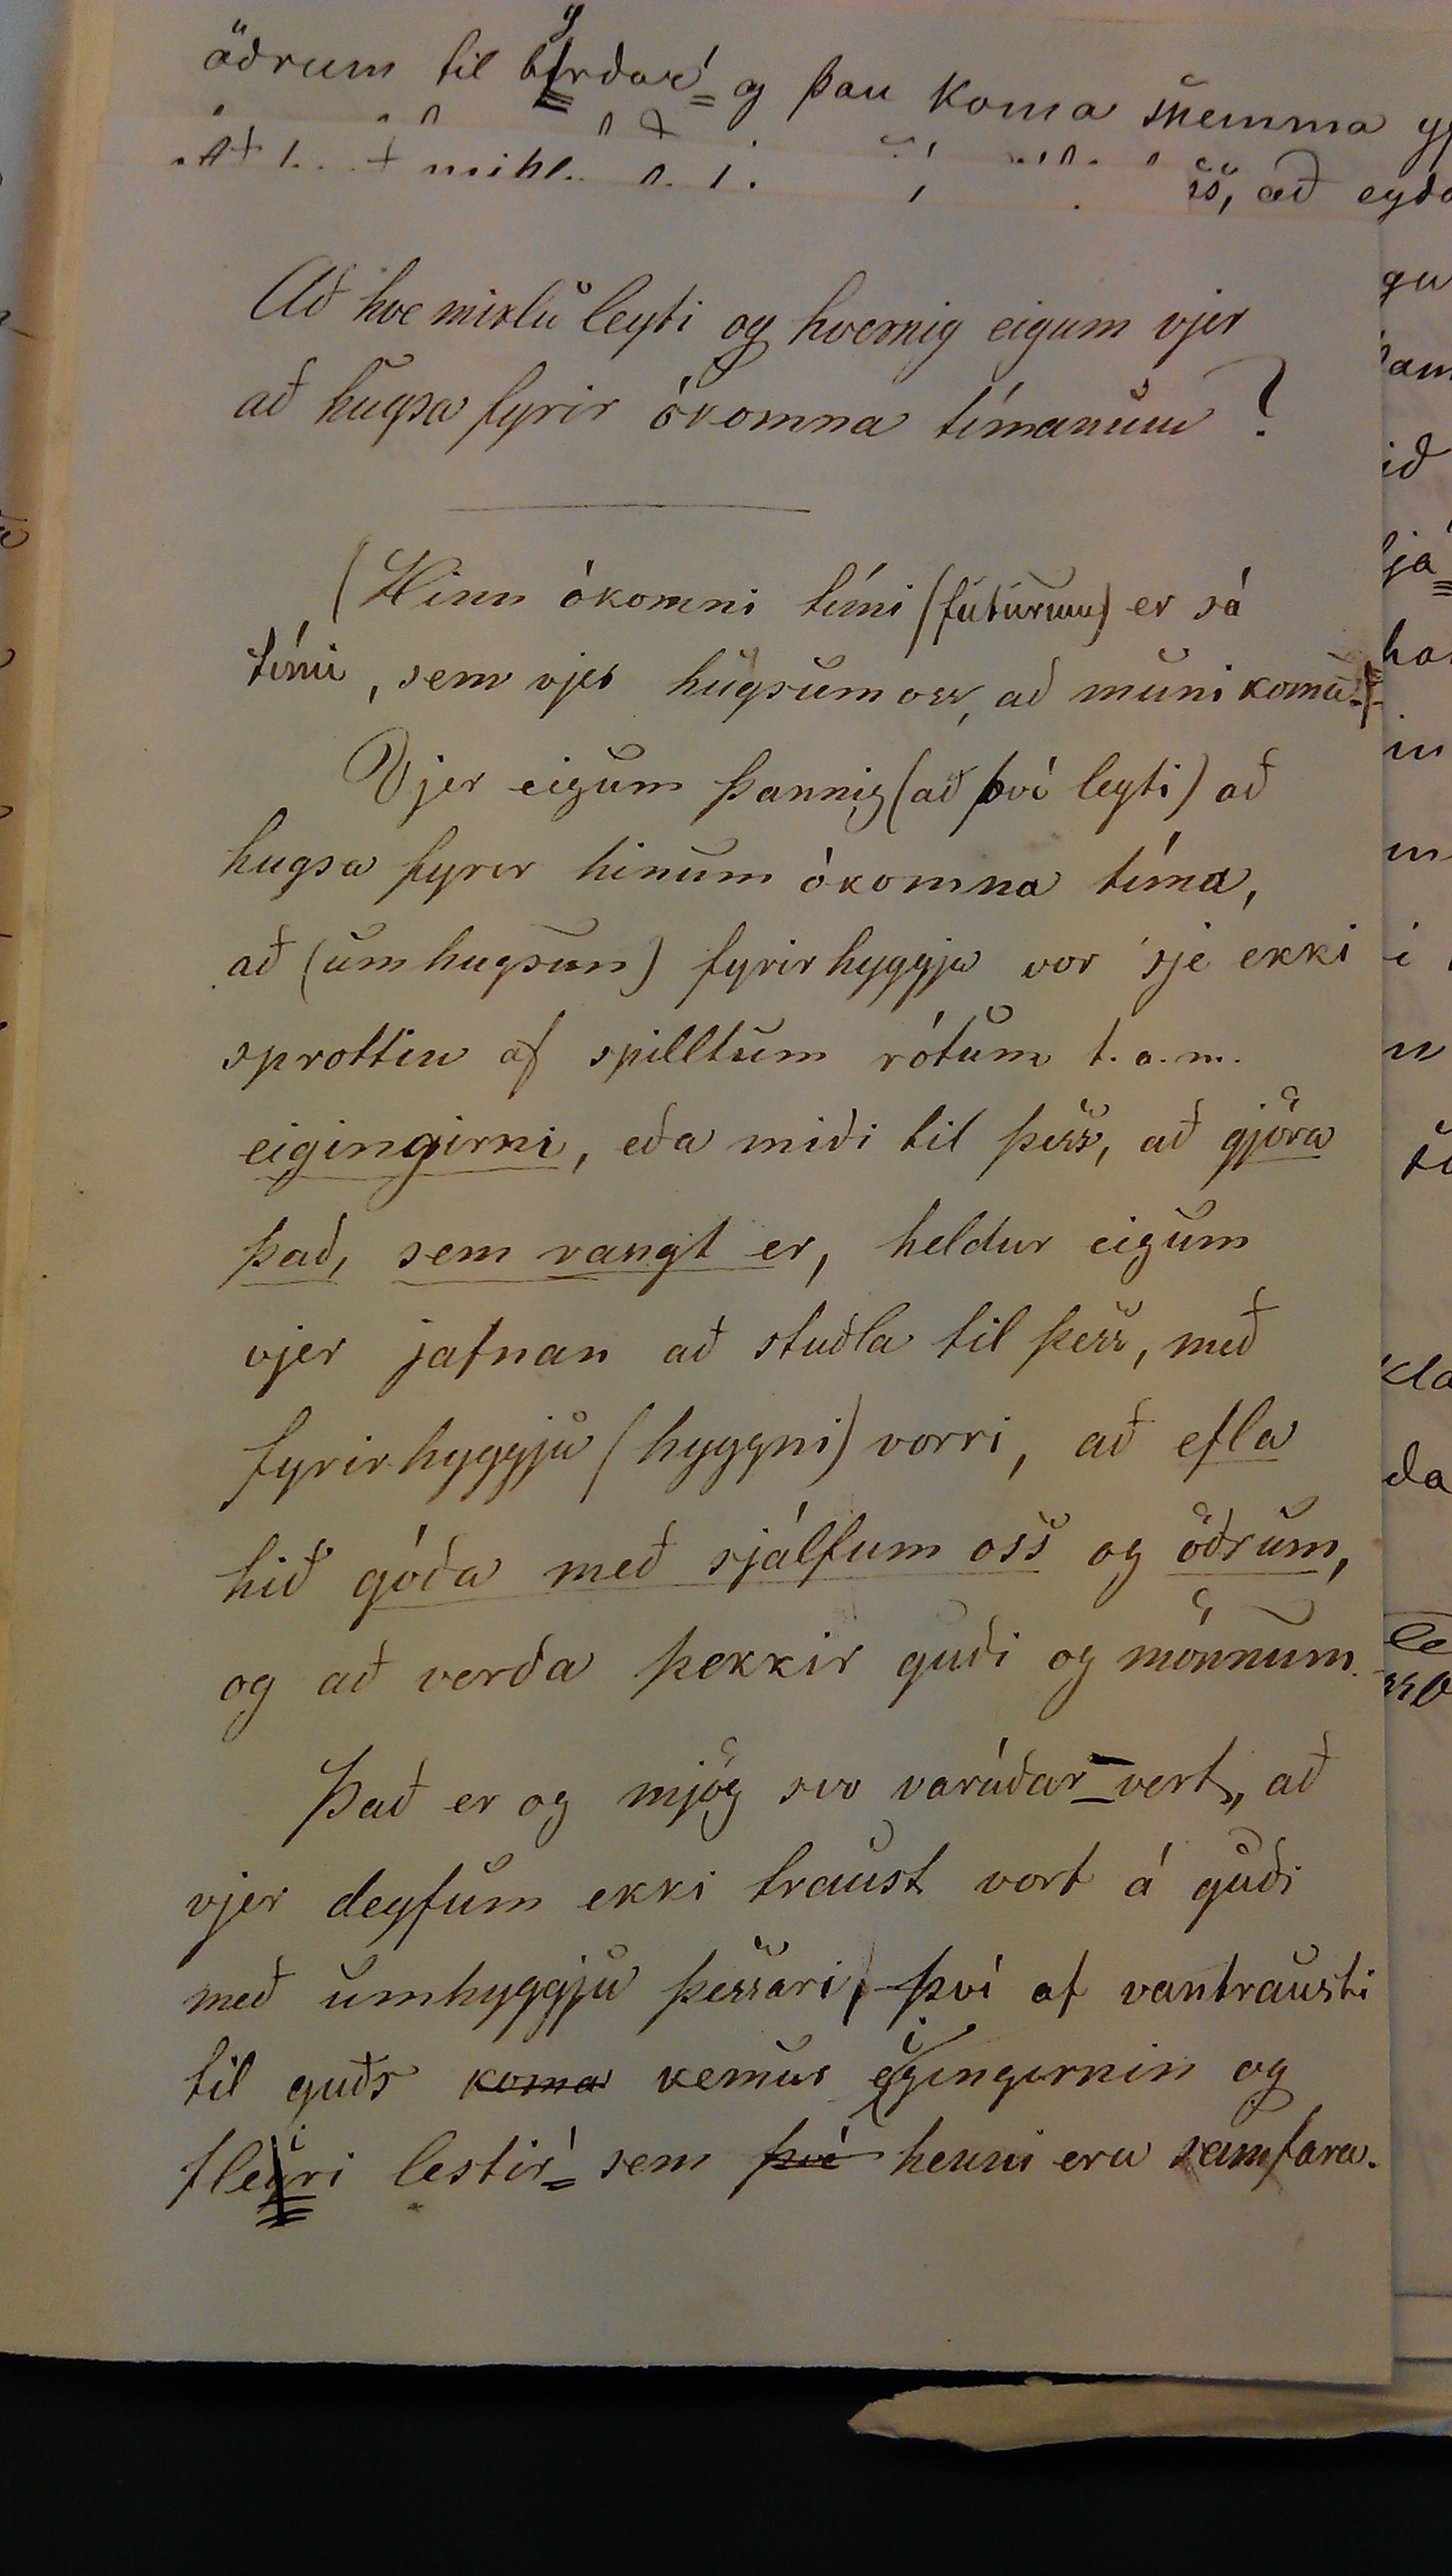 öðrum til byrðar og þau koma snemma
að eyða
Að hve miklu leyti og hvernig eigum vjer
að hugsa fyrir ókomna tímanum?
(Hinn ókomni tími (futurum) er sá
tími, sem vjer hugsum oss, að muni koma.)
Vjer eigum þannig (að því leyti) að
hugsa fyrir hinum ókomna tíma,
að (umhugsun) fyrirhyggja vor sje ekki
sprottin af spilltum rótum t.a.m.
eigingirni, eða miði til þess, að gjöra
það, sem rangt er, heldur eigum
vjer jafnan að stuðla til þess, með
fyrirhyggju (hyggni) vorri, að efla
hið góða með sjálfum oss og öðrum,
og að verða þekkir guði og mönnum.
Það er og mjög svo varúðar-vert, að
vjer deyfum ekki traust vort á guði
með umhyggju þessari, því af vantrausti
til guðs koma kemur eigingirnin og
fleiri lestir sem því henni eru samfara.